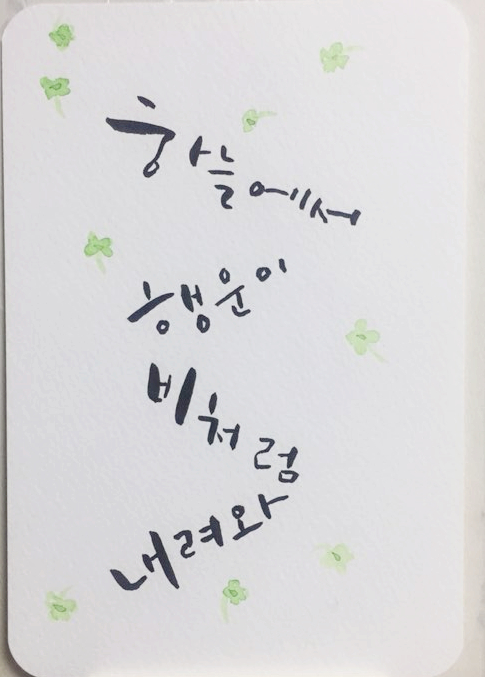 하늘에서
행운이
비처럼
내려와